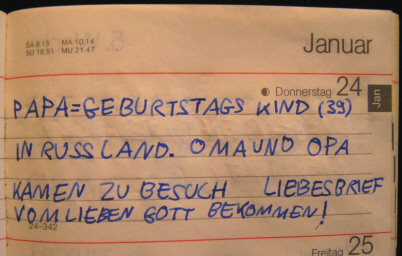 SA 8.15 MA 10.14
SU 16.51 MU 21.47
Januar
Donnerstag 24
Jan
PAPA=GEBURTSTAGS KIND (39)
IN RUSSLAND. OMA UND OPA
KAMEN ZU BESUCH LIEBESBRIEF
VOM LIEBEN GOTT BEKOMMEN!
24-342
Freitag 25